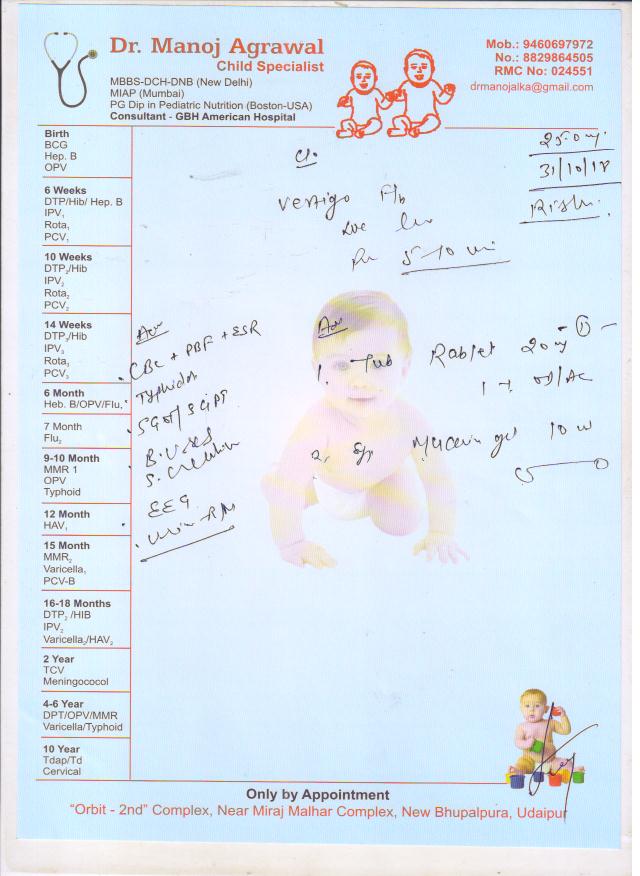 Dr. Manoj Agrawal
Child Specialist
MBBS-DCH-DNB (New Delhi)
MIAP (Mumbai)
PG Dip in Pediatric Nutrition (Boston-USA)
Consultant - GBH American Hospital
Mob.: 9460697972
No.: 8829864505
RMC No: 024551
drmanojalka@gmail.com
Birth
BCG
Hep. B
OPV
6 Weeks
DTP/Hib/ Hep. B
IPV₁
Rota₁
PCV₁
10 Weeks
DTP₂/Hib
IPV₂
Rota₂
PCV₂
14 Weeks
DTP₃/Hib
IPV₃
Rota₃
PCV₃
6 Month
Heb. B/OPV/Flu₁
7 Month
Flu₂
9-10 Month
MMR 1
OPV
Typhoid
12 Month
HAV₁
15 Month
MMR₂
Varicella₁
PCV-B
16-18 Months
DTP₂ /HIB
IPV₂
Varicella₂/HAV₂
2 Year
TCV
Meningococol
4-6 Year
DPT/OPV/MMR
Varicella/Typhoid
10 Year
Tdap/Td
Cervical
31/10/18
c/o
Vertigo
5-10
Adv
CBC + PBF + ESR
Typhidot
SGOT/SGPT
S. Creatinine
EEG
Urine R/M
Adv
1. Tab Rablet 20
1 t OD/AC
2. Syp Mucain gel 10
Only by Appointment
"Orbit - 2nd" Complex, Near Miraj Malhar Complex, New Bhupalpura, Udaipur